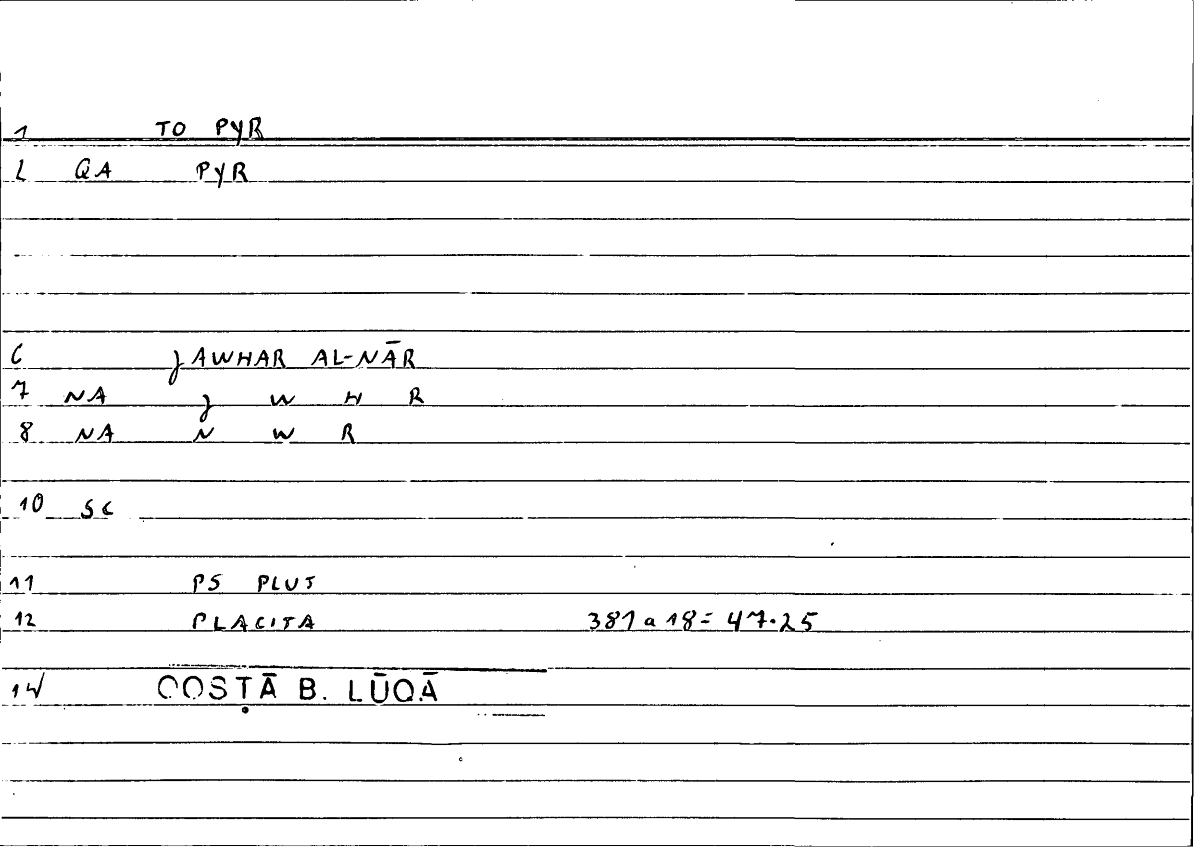 1 TO PYR
2 QA PYR
6 JAWHAR AL-NĀR
7 NA J W H R
8 NA N W R
10 SC
11 PS PLUT
12 PLACITA 381a18=47.25
14 COSṬĀ B. LŪQĀ